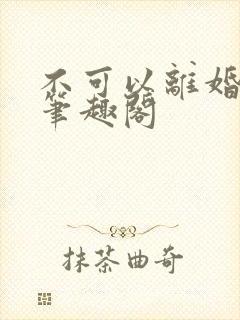 不可以離婚
筆趣閣
抹茶曲奇